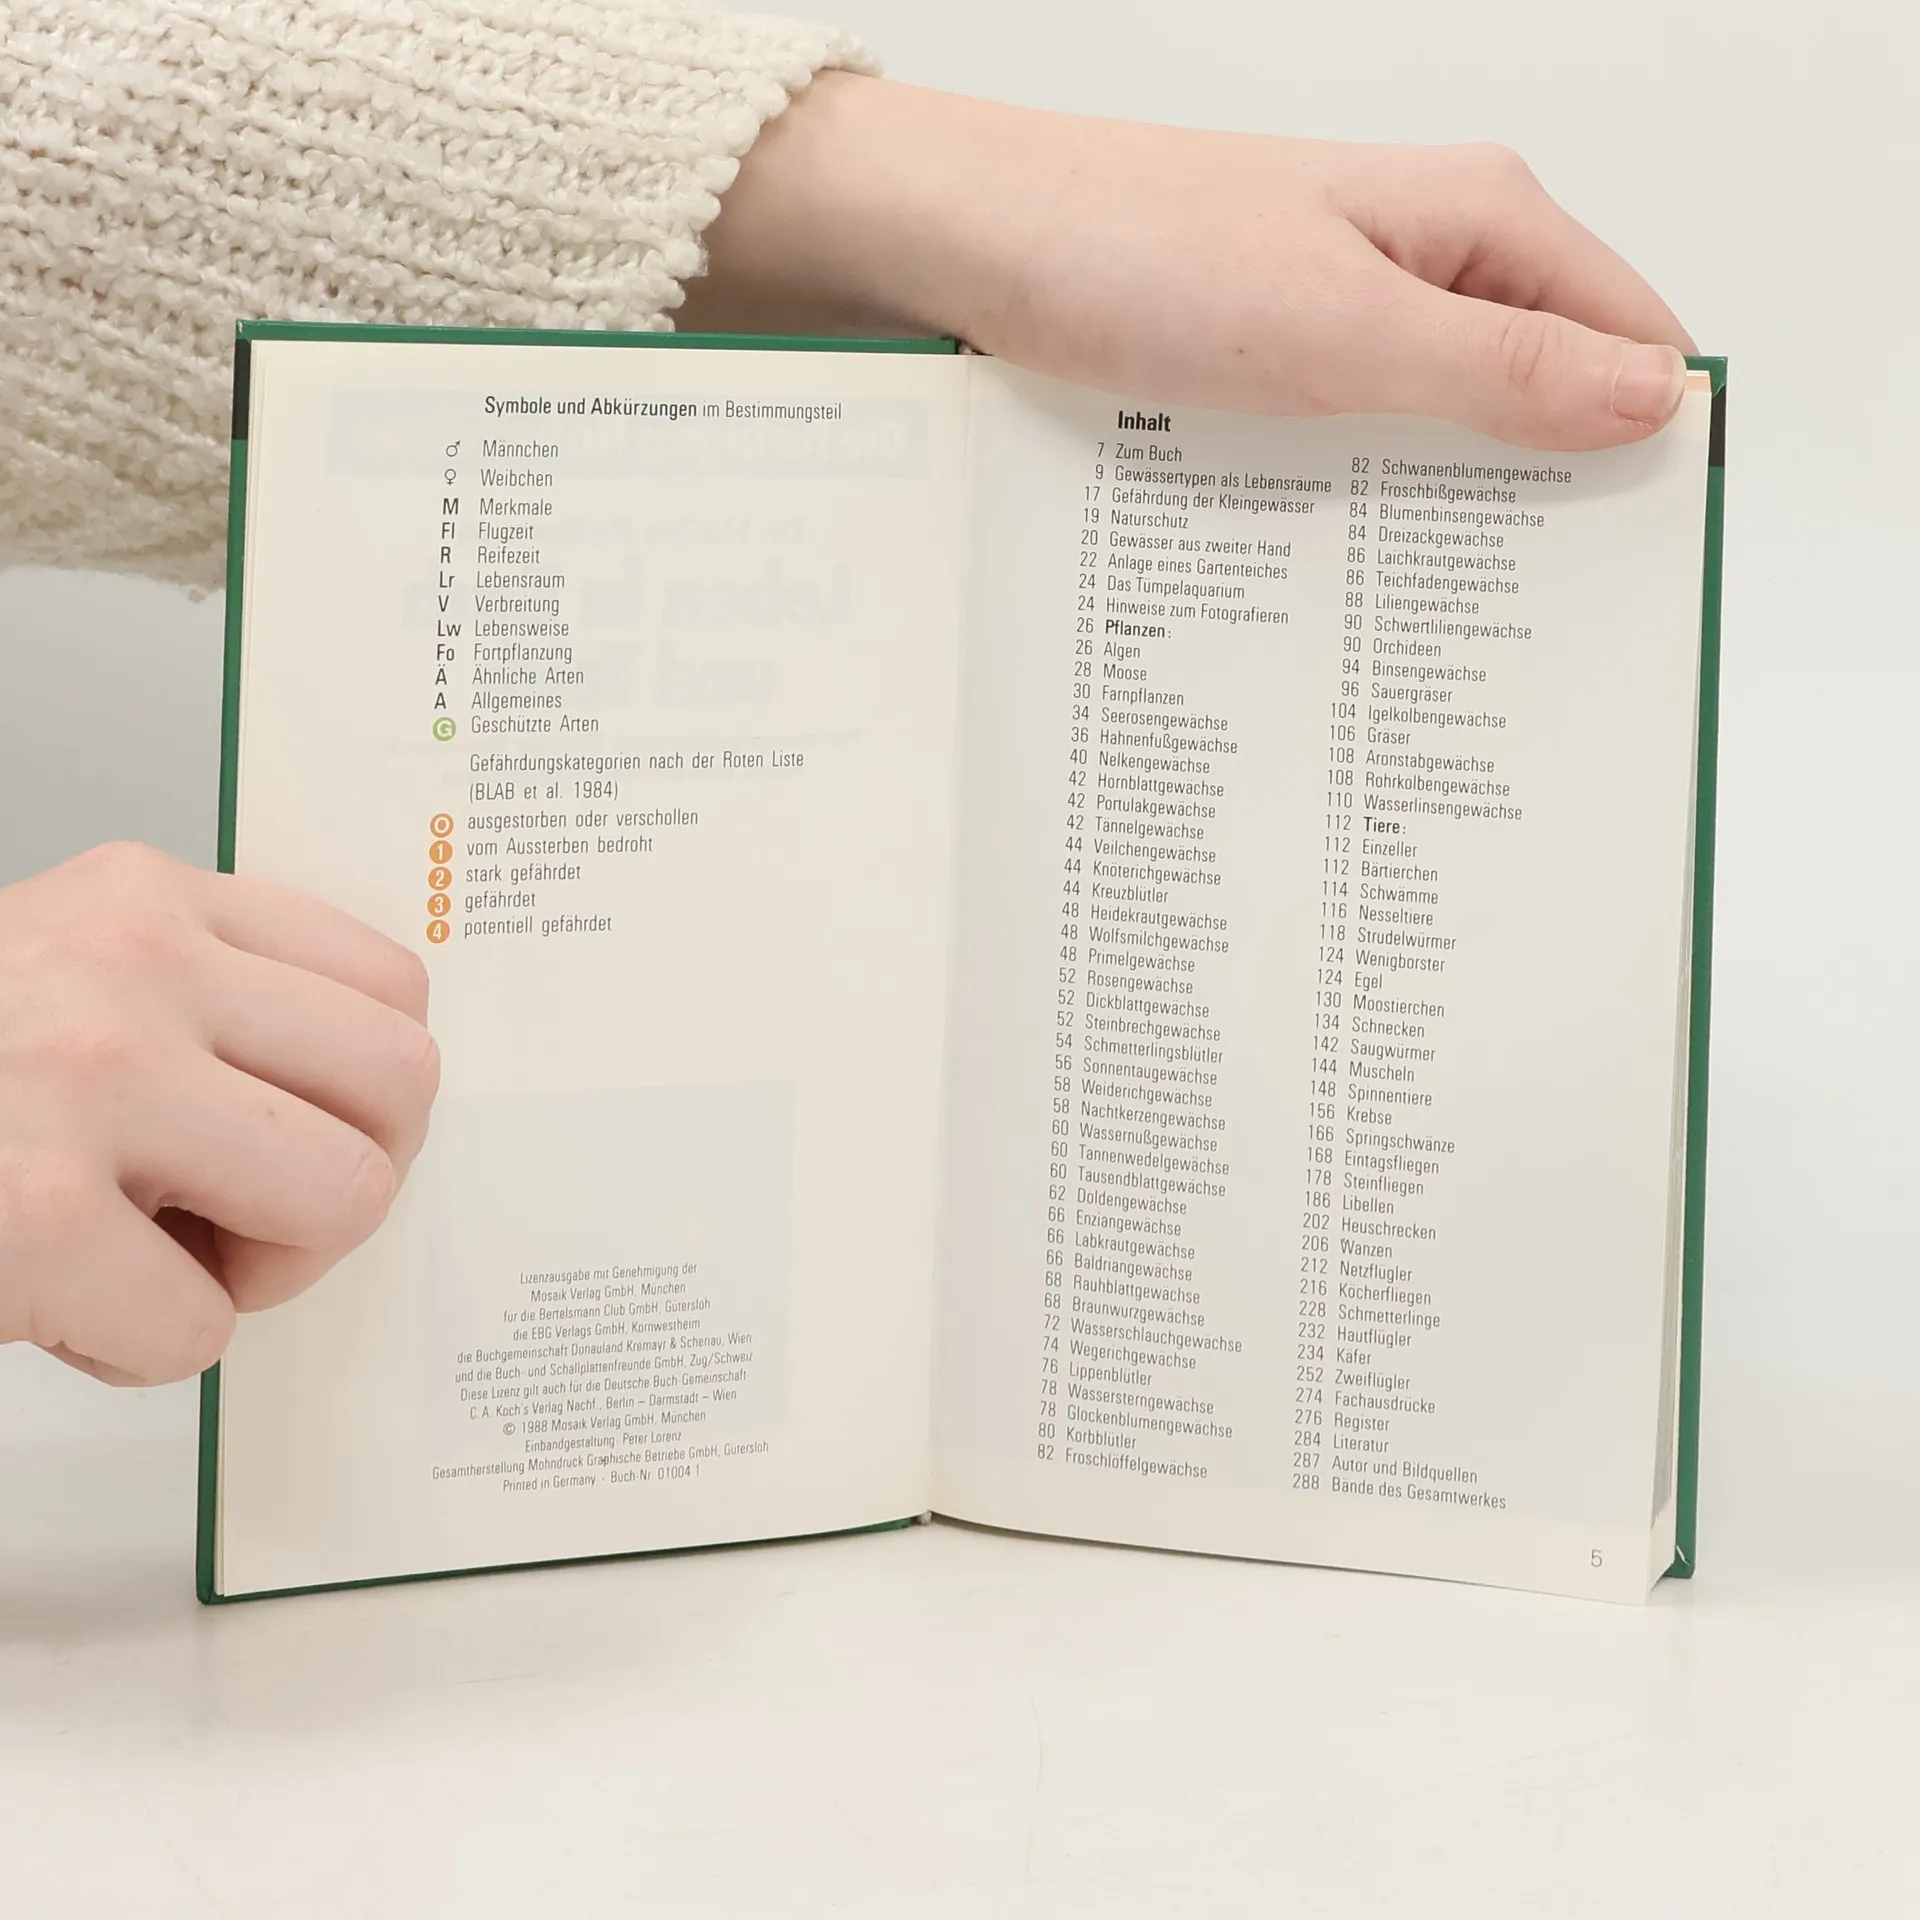 Symbole und Abkürzungen im Bestimmungsteil
♂ Männchen
♀ Weibchen
M Merkmale
Fl Flugzeit
R Reifezeit
Lr Lebensraum
V Verbreitung
Lw Lebensweise
Fo Fortpflanzung
Ä Ähnliche Arten
A Allgemeines
G Geschützte Arten
Gefährdungskategorien nach der Roten Liste
(BLAB et al. 1984)
0 ausgestorben oder verschollen
1 vom Aussterben bedroht
2 stark gefährdet
3 gefährdet
4 potentiell gefährdet
Lizenzausgabe mit Genehmigung der
Mosaik Verlag GmbH, München
für die Bertelsmann Club GmbH, Gütersloh
die EBG Verlags GmbH, Kornwestheim
die Buchgemeinschaft Donauland Kremayr & Scheriau, Wien
und die Buch- und Schallplattenfreunde GmbH, Zug/Schweiz
Diese Lizenz gilt auch für die Deutsche Buch-Gemeinschaft
C. A. Koch's Verlag Nachf., Berlin – Darmstadt – Wien
© 1988 Mosaik Verlag GmbH, München
Einbandgestaltung: Peter Lorenz
Gesamtherstellung Mohndruck Graphische Betriebe GmbH, Gütersloh
Printed in Germany · Buch-Nr. 01004 1
Inhalt
7 Zum Buch
9 Gewässertypen als Lebensräume
17 Gefährdung der Kleingewässer
19 Naturschutz
20 Gewässer aus zweiter Hand
22 Anlage eines Gartenteiches
24 Das Tümpelaquarium
24 Hinweise zum Fotografieren
26 Pflanzen:
26 Algen
28 Moose
30 Farnpflanzen
34 Seerosengewächse
36 Hahnenfußgewächse
40 Nelkengewächse
42 Hornblattgewächse
42 Portulakgewächse
42 Tännelgewächse
44 Veilchengewächse
44 Knöterichgewächse
44 Kreuzblütler
48 Heidekrautgewächse
48 Wolfsmilchgewächse
48 Primelgewächse
52 Rosengewächse
52 Dickblattgewächse
52 Steinbrechgewächse
54 Schmetterlingsblütler
56 Sonnentaugewächse
58 Weiderichgewächse
58 Nachtkerzengewächse
60 Wassernußgewächse
60 Tannenwedelgewächse
60 Tausendblattgewächse
62 Doldengewächse
66 Enziangewächse
66 Labkrautgewächse
66 Baldriangewächse
68 Rauhblattgewächse
68 Braunwurzgewächse
72 Wasserschlauchgewächse
74 Wegerichgewächse
76 Lippenblütler
78 Wassersterngewächse
78 Glockenblumengewächse
80 Korbblütler
82 Froschlöffelgewächse
82 Schwanenblumengewächse
82 Froschbißgewächse
84 Blumenbinsengewächse
84 Dreizackgewächse
86 Laichkrautgewächse
86 Teichfadengewächse
88 Liliengewächse
90 Schwertliliengewächse
90 Orchideen
94 Binsengewächse
96 Sauergräser
104 Igelkolbengewächse
106 Gräser
108 Aronstabgewächse
108 Rohrkolbengewächse
110 Wasserlinsengewächse
112 Tiere:
112 Einzeller
112 Bärtierchen
114 Schwämme
116 Nesseltiere
118 Strudelwürmer
124 Wenigborster
124 Egel
130 Moostierchen
134 Schnecken
142 Saugwürmer
144 Muscheln
148 Spinnentiere
156 Krebse
166 Springschwänze
168 Eintagsfliegen
178 Steinfliegen
186 Libellen
202 Heuschrecken
206 Wanzen
212 Netzflügler
216 Köcherfliegen
228 Schmetterlinge
232 Hautflügler
234 Käfer
252 Zweiflügler
274 Fachausdrücke
276 Register
284 Literatur
287 Autor und Bildquellen
288 Bände des Gesamtwerkes
5